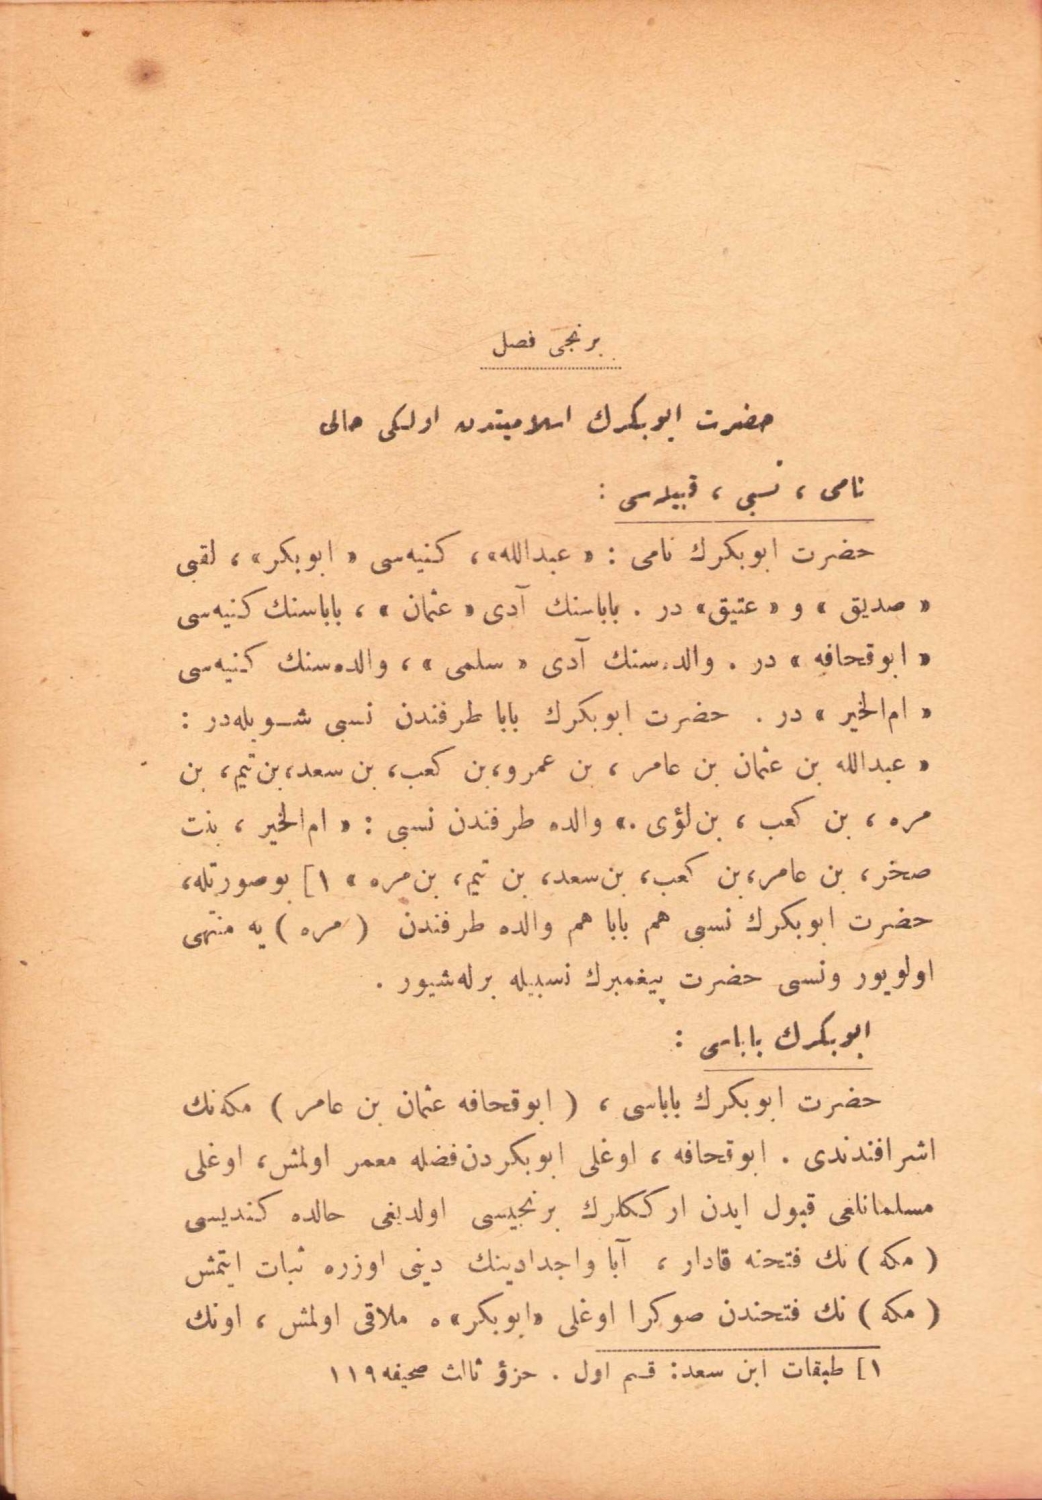 برنجى فصل
حضرت ابوبكرك اسلاميتدن اولكى حالى
نامى ، نسبى ، قبيله‌سى :
حضرت ابوبكرك نامى : « عبدالله» ، كنيه‌سى « ابوبكر» ، لقبى
« صديق » و « عتيق» در . باباسنك آدى « عثمان » ، باباسنك كنيه‌سى
« ابوقحافه » در . والده‌سنك آدى « سلمى » ، والده‌سنك كنيه‌سى
« ام‌الخير » در . حضرت ابوبكرك بابا طرفندن نسبى شويله‌در :
« عبدالله بن عثمان بن عامر ، بن عمرو،بن كعب، بن سعد،بن تيم، بن
مره ، بن كعب ، بن لؤى .» والده طرفندن نسبى : « ام‌الخير ، بنت
صخر، بن عامر،بن كعب، بن سعد، بن تيم، بن مره » ١] بوصورتله،
حضرت ابوبكرك نسبى هم بابا هم والده طرفندن ( مره ) يه منتهى
اولويور ونسبى حضرت پيغمبرك نسبيله برله‌شيور .
ابوبكرك باباسى :
حضرت ابوبكرك باباسى ، ( ابوقحافه عثمان بن عامر ) مكه‌نك
اشرافندندى . ابوقحافه ، اوغلى ابوبكردن فضله معمر اولمش، اوغلى
مسلمانلغى قبول ايدن ارككلرك برنجيسى اولديغى حالده كنديسى
( مكه ) نك فتحنه قادار ، آبا واجدادينك دينى اوزره ثبات ايتمش
( مكه ) نك فتحندن صوكرا اوغلى «ابوبكر» ه ملاقى اولمش ، اونك
١] طبقات ابن سعد: قسم اول . جزؤ ثالث صحيفه ١١٩